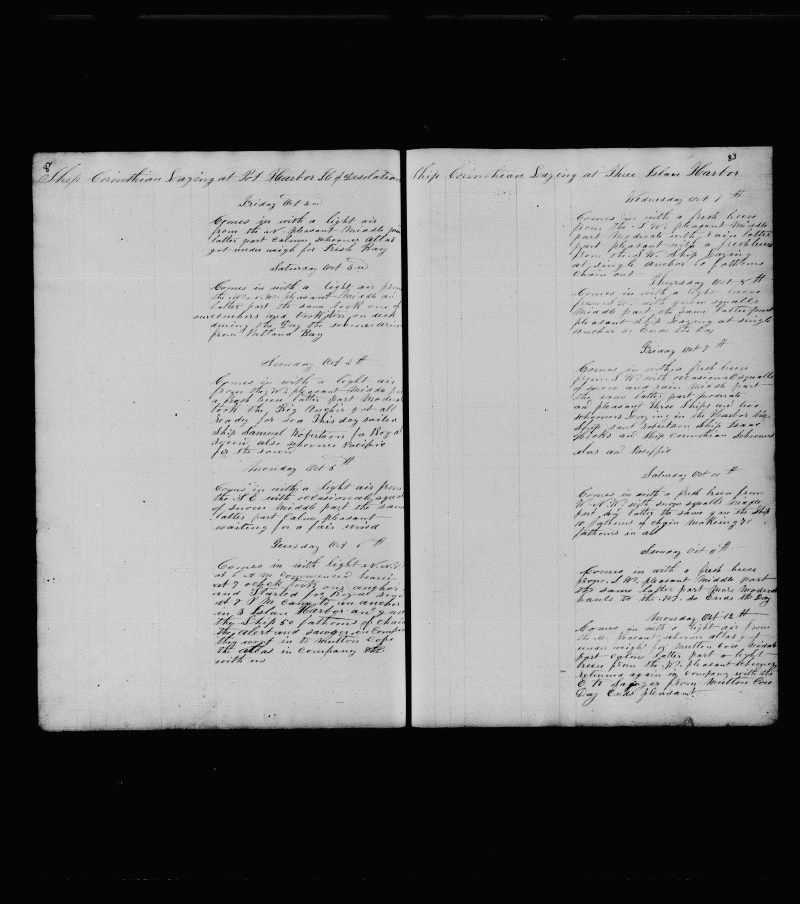 82
Ship Corinthian Laying at Pot Harbor Il of Desolation
Friday Oct 2nd
Comes in with a light air
from the N. pleasant Middle part
latter part Calm, schooner atlas
got under weigh for Irish Bay
Saturday Oct 3rd
Comes in with a light air from
the pleasant Middle an
latter part the same took one of
our anchors and took on deck
during the Day the schooner
from Bay
Sunday Oct 4th
Comes in with a light air
from the W. pleasant Middle part
a fresh breeze latter part Moderate
took the Big Anchor got all
ready for sea This day sailed
ship Samuel Robertson for Royal
also schooner Pacific
for the sound
Monday Oct 5th
Comes in with a light air from
the S.E with occasional squalls
of snow Middle part the same
latter part Calm, pleasant
waiting for a fair wind
Tuesday Oct 6th
Comes in with light
at 6 A M Commenced
at 7 oclock took our anchor
and Started for Royal
at 7 P M Came to an anchor
in 3 Islan Harbor
the Ship 50 fathoms of chain
the alert and in Company
they went in to Mutton Cove
the atlas in Company
with us
83
Ship Corinthian Laying at Three Islan Harbor
Wednesday Oct 7th
Comes in with a fresh breeze
from the S W. pleasant Middle
part Moderate with rain latter
part pleasant with a fresh breeze
from the S.W. Ship Laying
at single anchor 60 fathoms
Chain out
Thursday Oct 8th
Comes in with a light breeze
from with snow squalls
Middle part the same latter part
pleasant ship Laying at single
anchor so Ends the Day
Friday Oct 9th
Comes in with a fresh breeze
from S W. with occasional squalls
of snow and rain Middle part
the same latter part moderate
an pleasant Three Ships an two
schooners Laying in the Harbor
Ship Saml Robertson Ship Isaac
Hicks an Ship Corinthian Schooners
atlas an Paciffic
Saturday Oct 10th
Comes in with a fresh breeze from
W. N.W. with snow squalls Middle
part, latter the same the Ship
10 fathoms of chain Making 70
fathoms in all
Sunday Oct 11th
Comes in with a fresh breeze
from S.W. pleasant Middle part
the same latter part More Moderate
hauls to the W. So Ends the Day
Monday Oct 12th
Comes in with a light air from
the N. pleasant schooner atlas got
under weigh for Mutton Cove, Middle
part Calm latter part a light
breeze from the W. pleasant Schooner
returned again in Company with the
from Mutton Cove
Day Ends pleasant